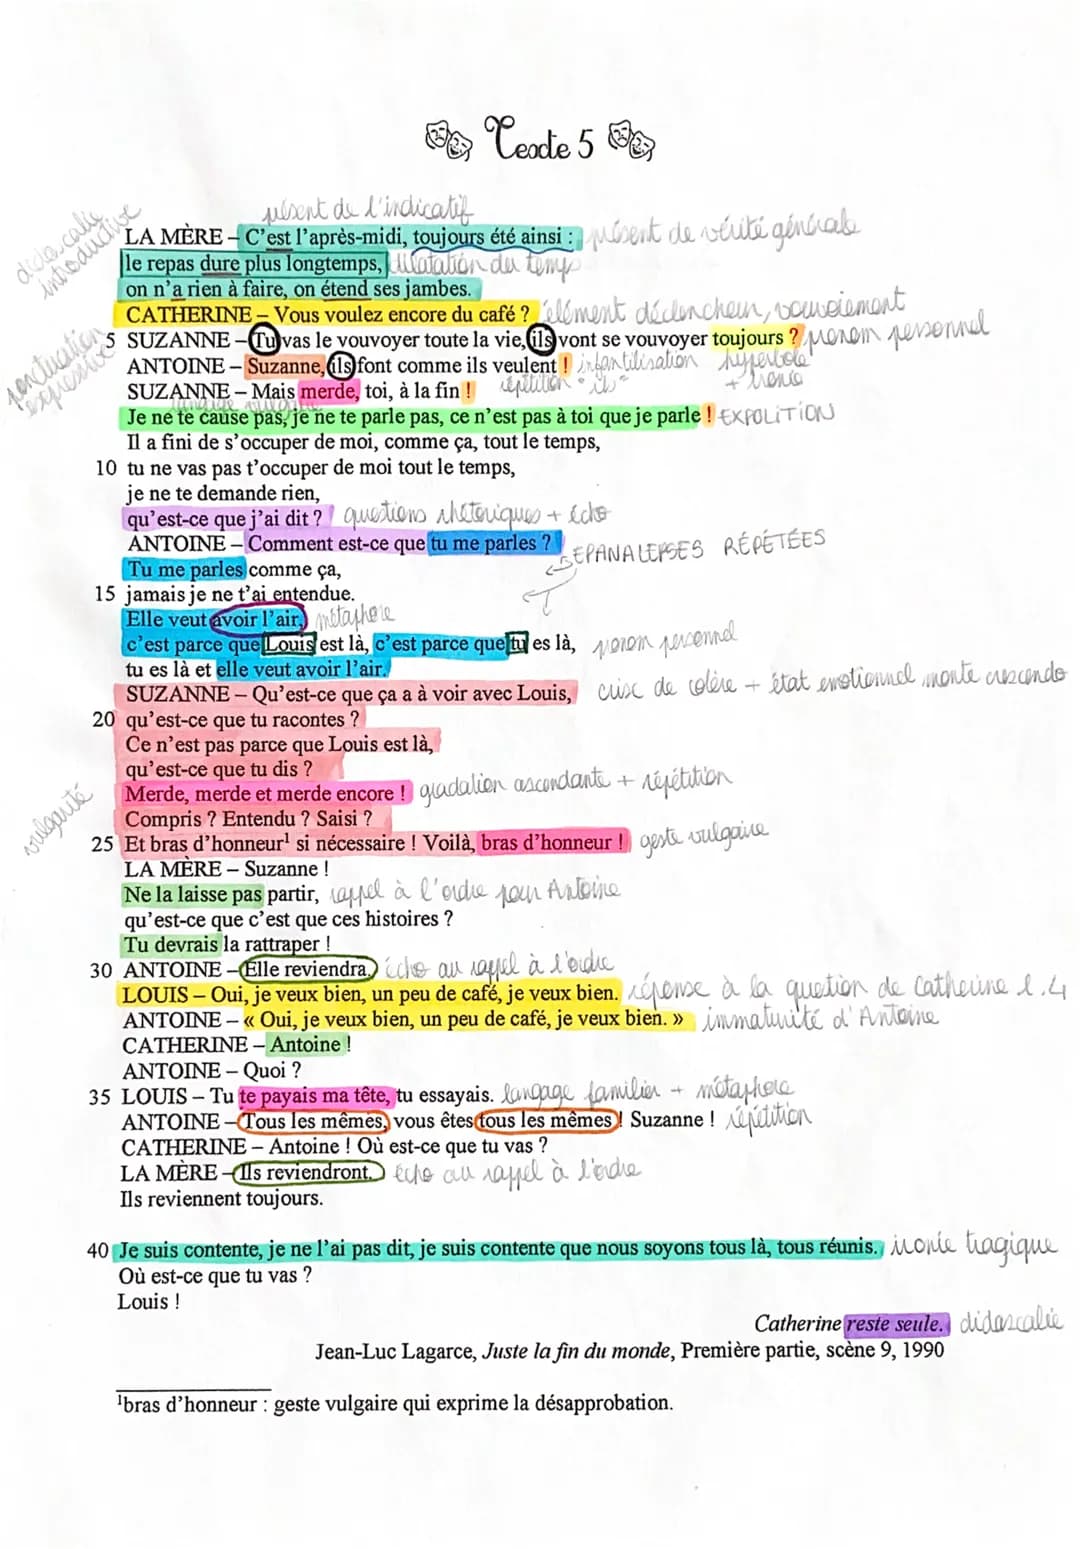 Texte 5
présent de l'indicatif
didascalie introductive
LA MÈRE – C'est l'après-midi, toujours été ainsi : présent de vérité générale
le repas dure plus longtemps, dilatation du temps
on n'a rien à faire, on étend ses jambes.
CATHERINE – Vous voulez encore du café ? élément déclencheur, vouvoiement
ponctuation expressive
5 SUZANNE – Tu vas le vouvoyer toute la vie, ils vont se vouvoyer toujours ? pronom personnel
ANTOINE – Suzanne, ils font comme ils veulent ! infantilisation hyperbole
SUZANNE – Mais merde, toi, à la fin ! répétition "ils" + ironie
langage vulgaire
Je ne te cause pas, je ne te parle pas, ce n'est pas à toi que je parle ! EXPOLITION
Il a fini de s'occuper de moi, comme ça, tout le temps,
10 tu ne vas pas t'occuper de moi tout le temps,
je ne te demande rien,
qu'est-ce que j'ai dit ? questions rhétoriques + écho
ANTOINE – Comment est-ce que tu me parles ? EPANALEPSES RÉPÉTÉES
Tu me parles comme ça,
15 jamais je ne t'ai entendue.
Elle veut avoir l'air, métaphore
c'est parce que Louis est là, c'est parce que tu es là, pronom personnel
tu es là et elle veut avoir l'air.
SUZANNE – Qu'est-ce que ça a à voir avec Louis, crise de colère + état emotionnel monte crescendo
20 qu'est-ce que tu racontes ?
Ce n'est pas parce que Louis est là,
qu'est-ce que tu dis ?
Merde, merde et merde encore ! gradation ascendante + répétition
vulgarité
Compris ? Entendu ? Saisi ?
25 Et bras d'honneur¹ si nécessaire ! Voilà, bras d'honneur ! geste vulgaire
LA MÈRE – Suzanne !
Ne la laisse pas partir, rappel à l'ordre pour Antoine
qu'est-ce que c'est que ces histoires ?
Tu devrais la rattraper !
30 ANTOINE – Elle reviendra. écho au rappel à l'ordre
LOUIS – Oui, je veux bien, un peu de café, je veux bien. réponse à la question de Catherine l.4
ANTOINE – « Oui, je veux bien, un peu de café, je veux bien. » immaturité d'Antoine
CATHERINE – Antoine !
ANTOINE – Quoi ?
35 LOUIS – Tu te payais ma tête, tu essayais. langage familier + métaphore
ANTOINE – Tous les mêmes, vous êtes tous les mêmes ! Suzanne ! répétition
CATHERINE – Antoine ! Où est-ce que tu vas ?
LA MÈRE – Ils reviendront. écho au rappel à l'ordre
Ils reviennent toujours.
40 Je suis contente, je ne l'ai pas dit, je suis contente que nous soyons tous là, tous réunis. ironie tragique
Où est-ce que tu vas ?
Louis !
Catherine reste seule. didascalie
Jean-Luc Lagarce, Juste la fin du monde, Première partie, scène 9, 1990
¹bras d'honneur : geste vulgaire qui exprime la désapprobation.